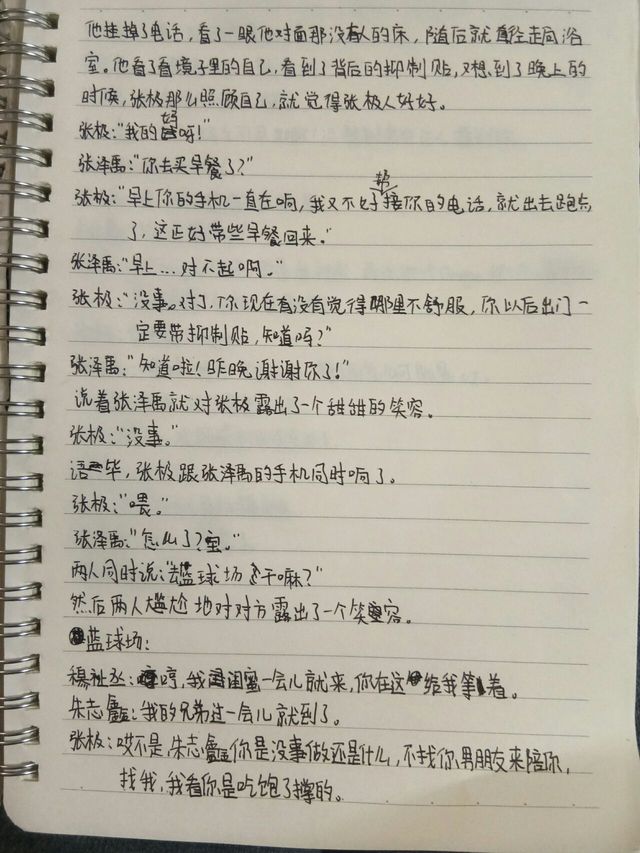 他挂掉了电话，看了一眼他对面那没有人的床，随后就直径走向浴
室。他看了看境子里的自己，看到了背后的抑制贴，又想到了晚上的
时候，张极那么照顾自己，就觉得张极人好好。
张极：“我的好呀！”
张泽禹：“你去买早餐了？”
张极：“早上你的手机一直在响，我又不好帮接你的电话，就出去跑步
了，这正好带些早餐回来。”
张泽禹：“早上...对不起啊。”
张极：“没事。对了，你现在有没有觉得哪里不舒服，你以后出门一
定要带抑制贴，知道吗？”
张泽禹：“知道啦！昨晚谢谢你了！”
说着张泽禹就对张极露出了一个甜甜的笑容。
张极：“没事。”
语毕，张极跟张泽禹的手机同时响了。
张极：“喂。”
张泽禹：“怎么了？宝。”
两人同时说：“去篮球场干嘛？”
然后两人尴尬地对对方露出了一个笑容。
蓝球场：
穆祉丞：哼，我闺蜜一会儿就来，你在这给我等着。
朱志鑫：我的兄弟过一会儿就到了。
张极：哎不是，朱志鑫你是没事做还是什么，不找你男朋友来陪你，
找我，我看你是吃饱了撑的。